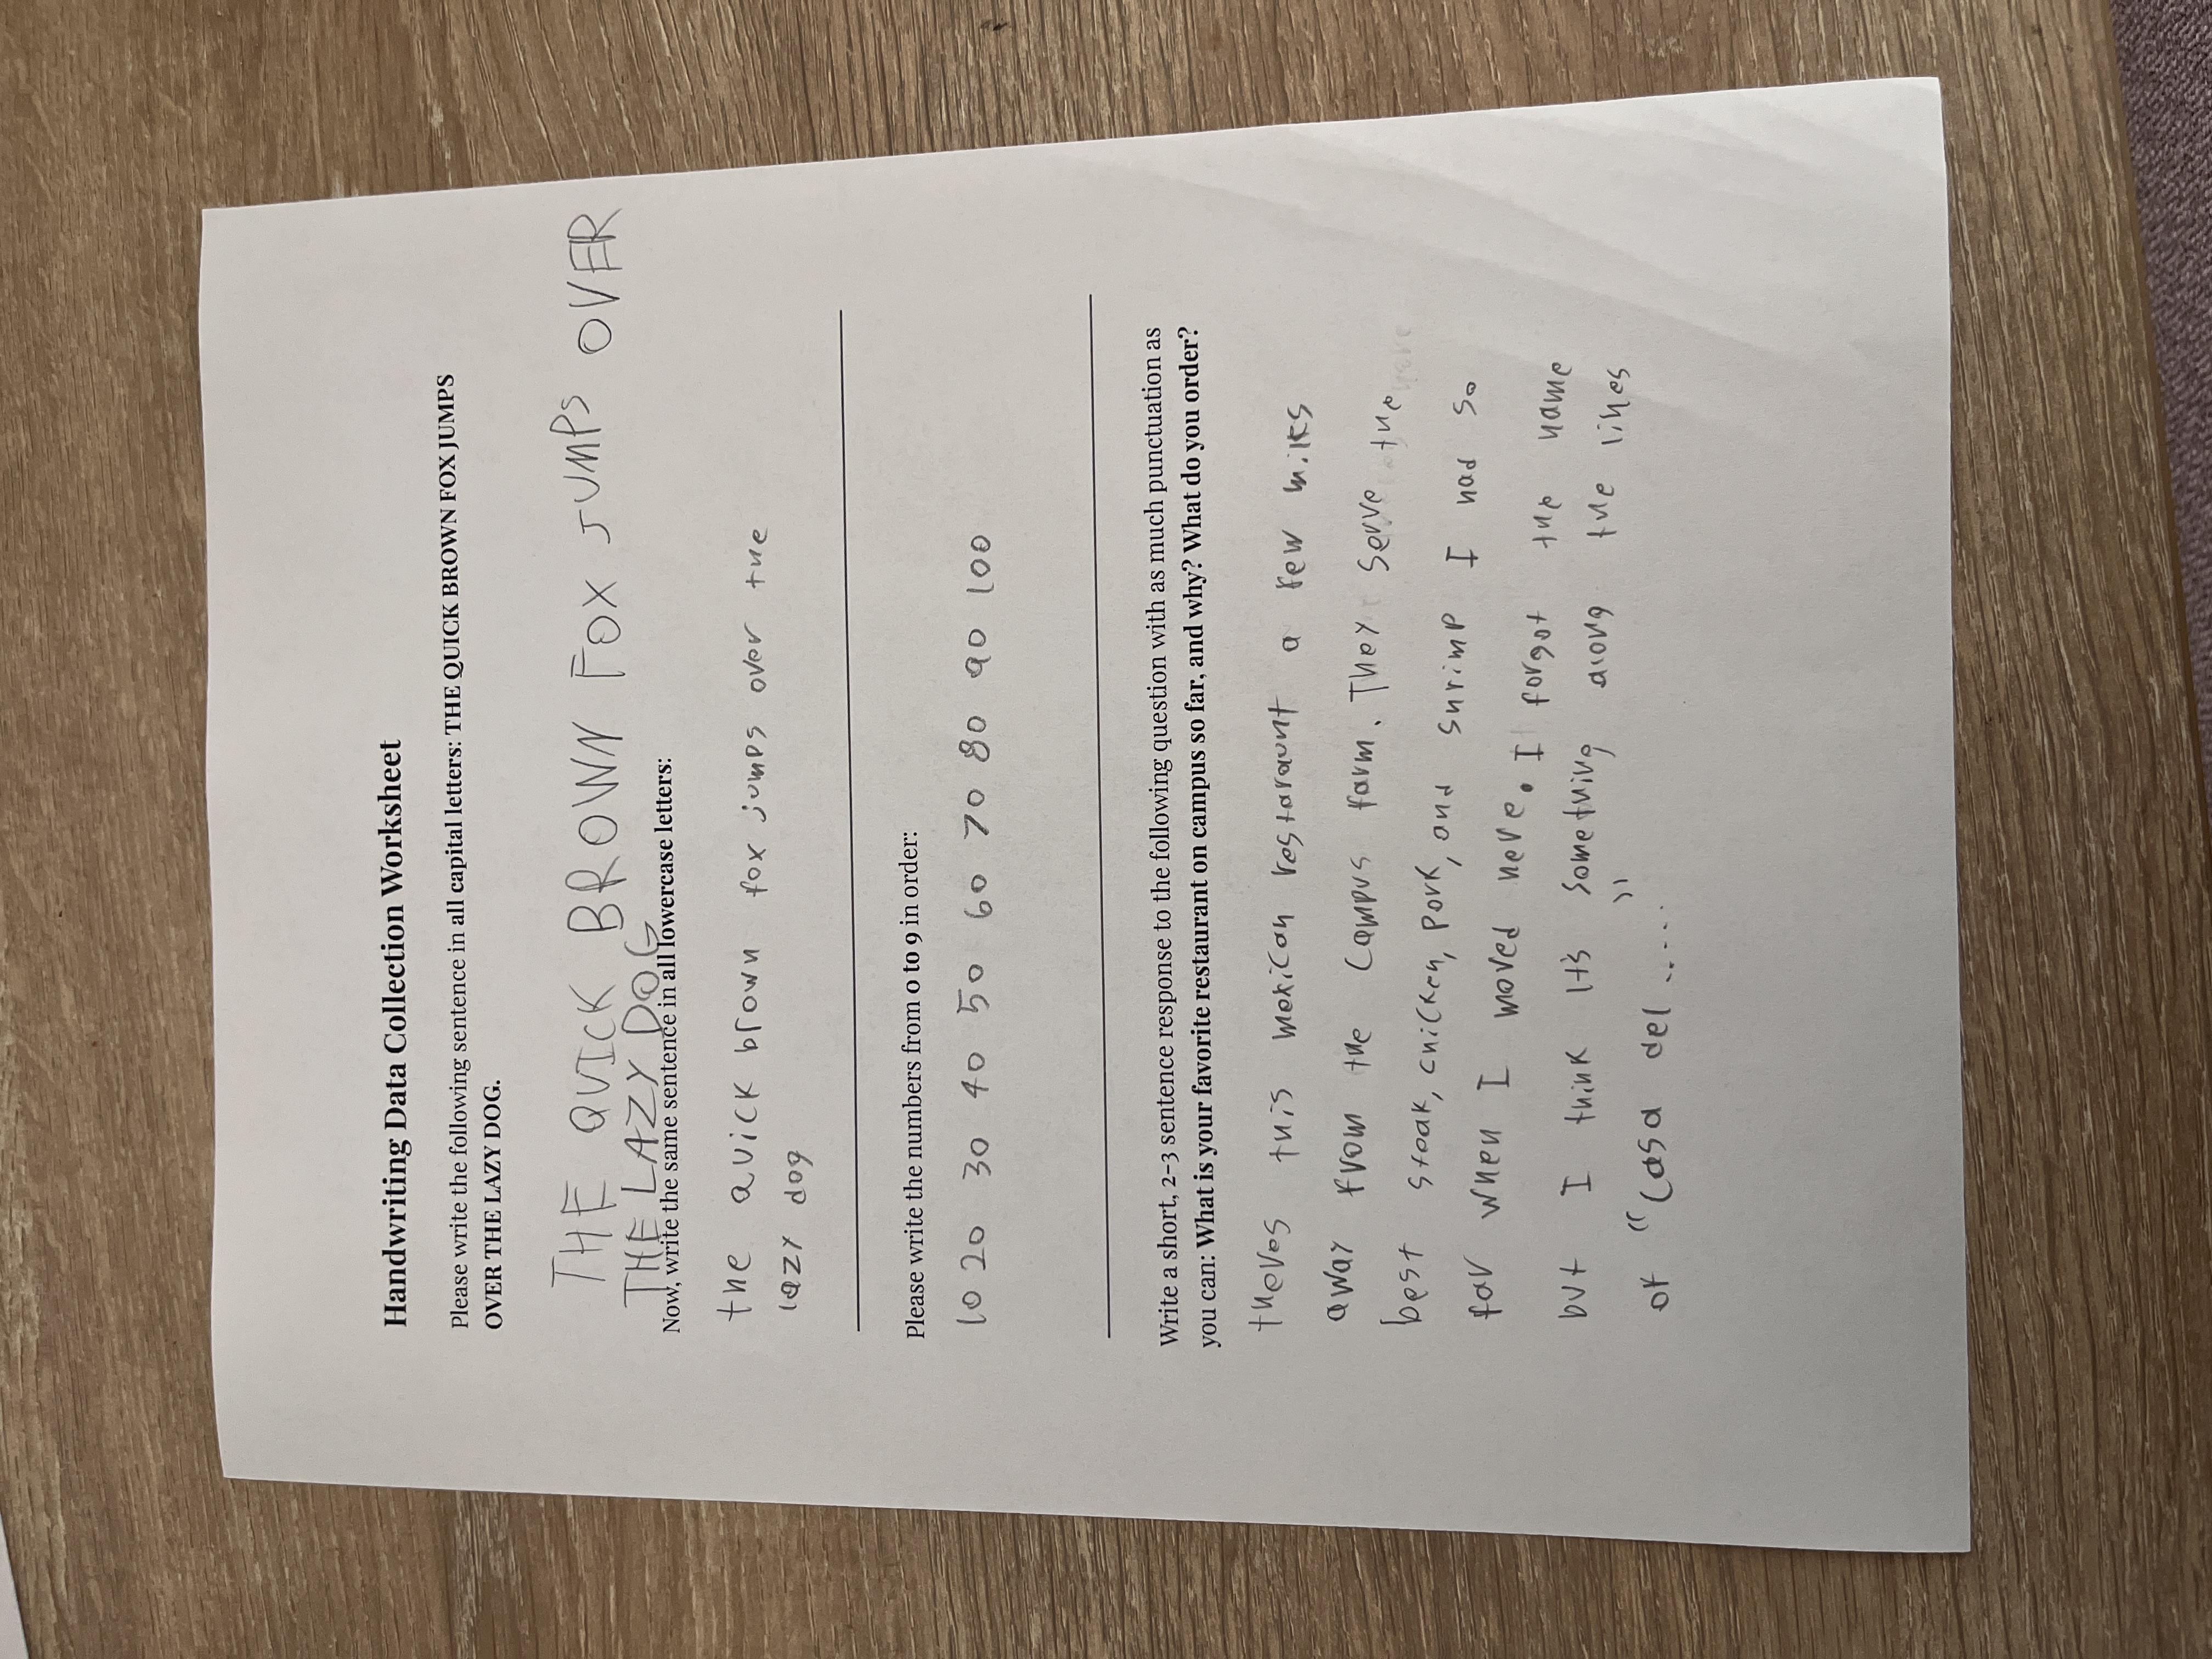 Handwriting Data Collection Worksheet
Please write the following sentence in all capital letters: THE QUICK BROWN FOX JUMPS
OVER THE LAZY DOG.
THE QUICK BROWN FOX JUMPS OVER
THE LAZY DOG
Now, write the same sentence in all lowercase letters:
the quick brown fox jumps over the
lazy dog
Please write the numbers from 0 to 9 in order:
10 20 30 40 50 60 70 80 90 100
Write a short, 2-3 sentence response to the following question with as much punctuation as
you can: What is your favorite restaurant on campus so far, and why? What do you order?
theres this mexican restaraunt a few miles
away from the campus farm. They serve the
best steak, chicken, pork, and shrimp I had so
far when I moved here. I forgot the name
but I think it's something along the lines
of "Casa del ....."